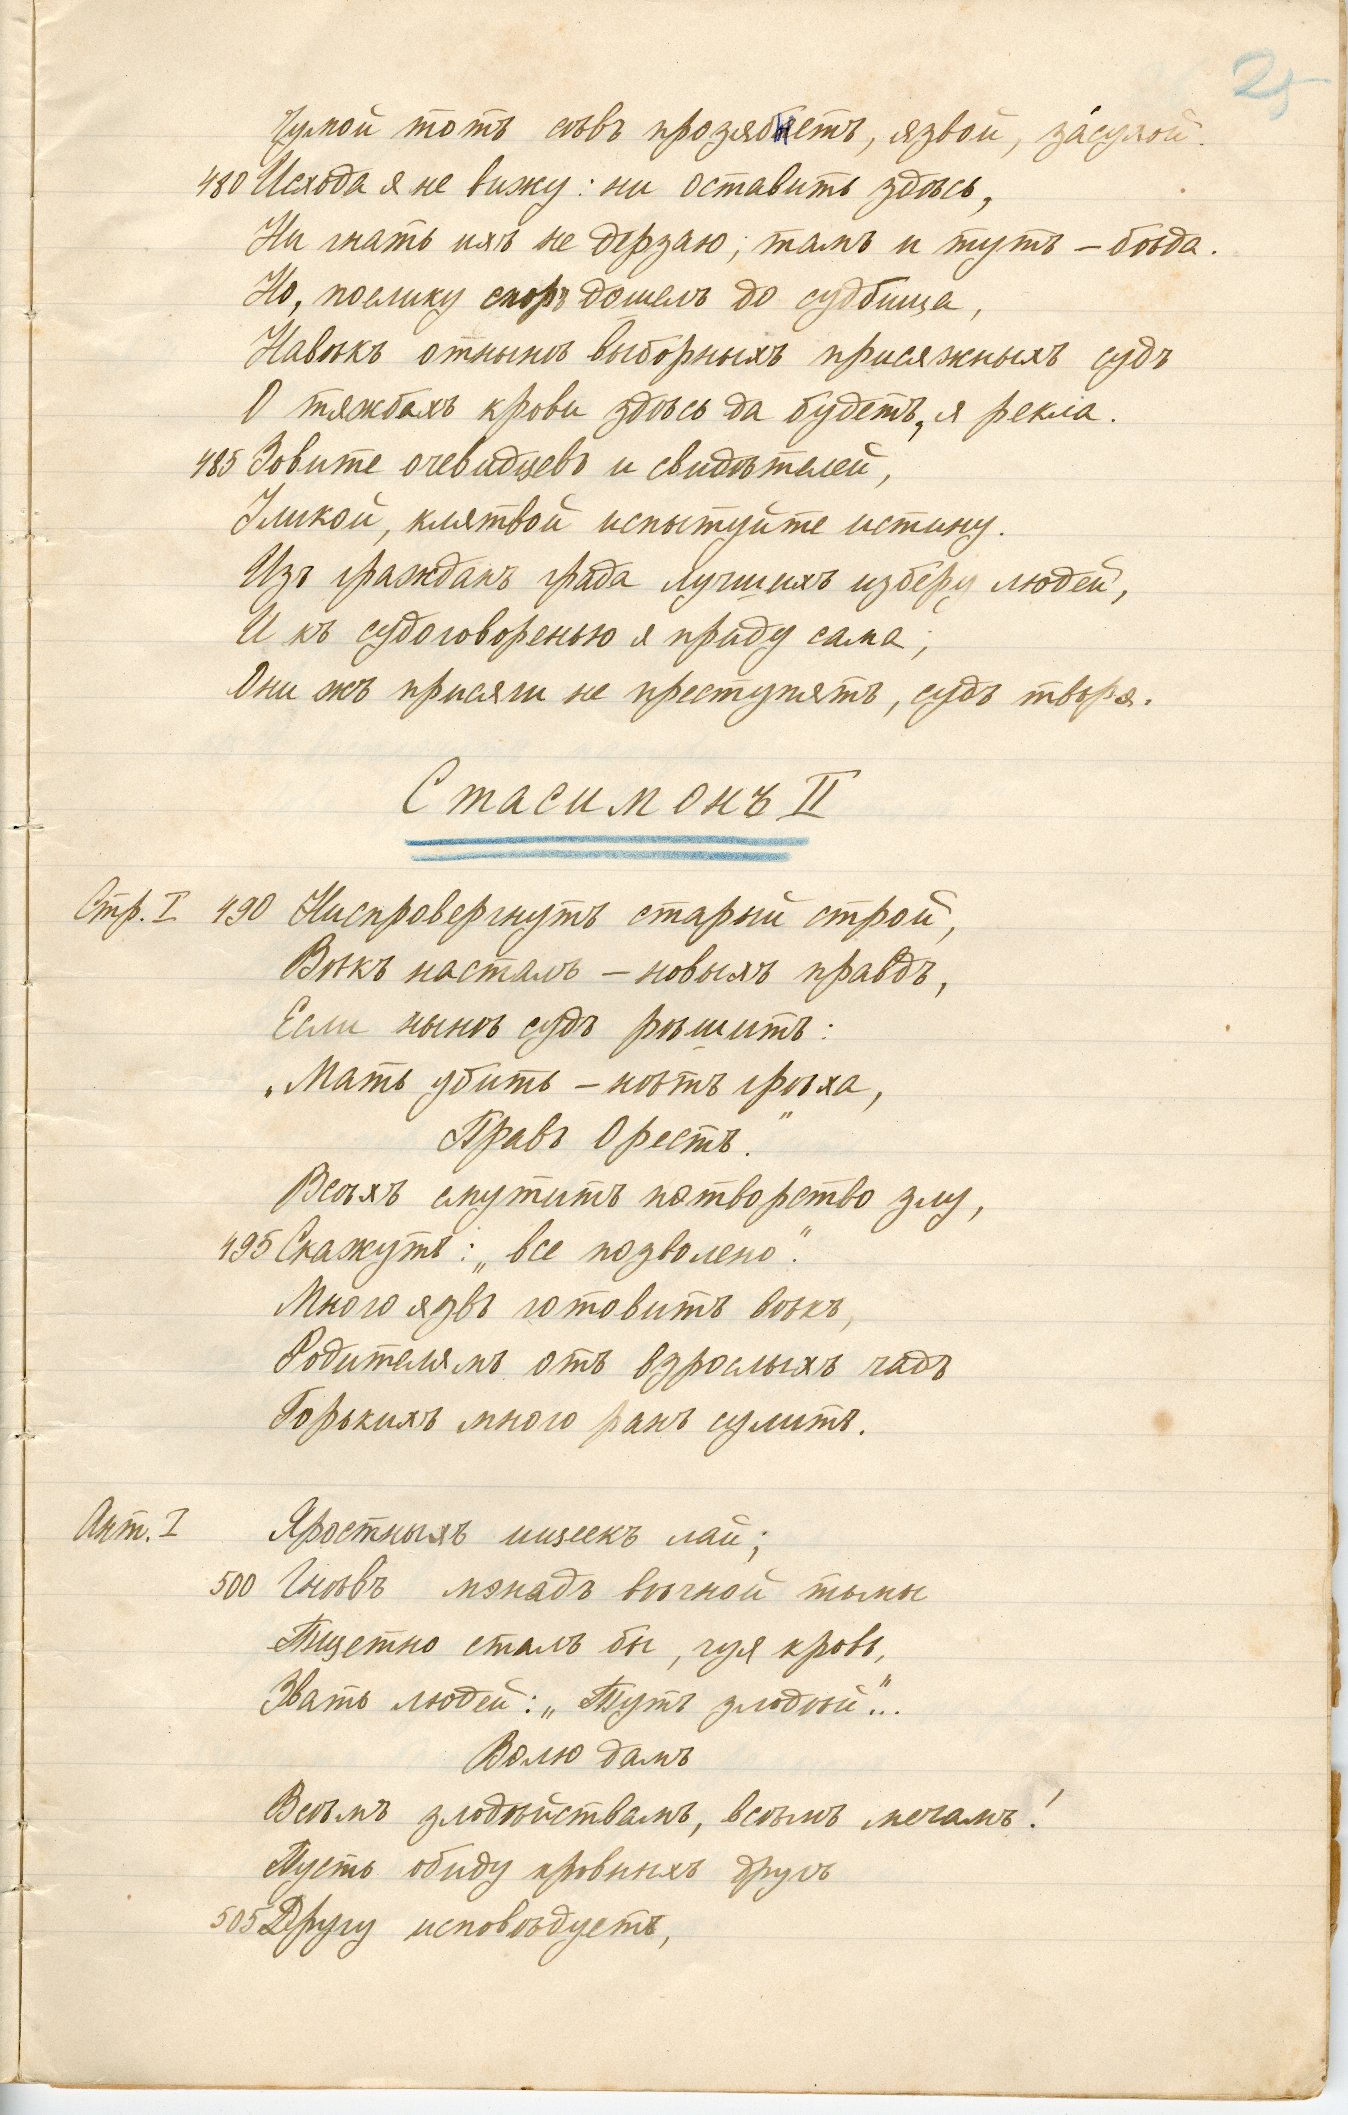 25
Чумой тотъ сѣвъ прозябнетъ, язвой, за́сухой.
480 Исхода я не вижу: ни оставить здѣсь,
Ни гнать ихъ не дерзаю; тамъ и тутъ – бѣда.
Но, поелику споръ дошелъ до судбища,
Навѣкъ отнынѣ выборныхъ присяжныхъ судъ
О тяжбахъ крови здѣсь да будетъ, я рекла.
485 Зовите очевидцевъ и свидѣтелей,
Уликой, клятвой испытуйте истину.
Изъ гражданъ града лучшихъ изберу людей,
И къ судоговоренью я приду сама;
Они жъ присяги не преступятъ, судъ творя.
Стасимонъ II
Стр. I 490 Ниспровергнутъ старый строй,
Вѣкъ насталъ – новыхъ правдъ,
Если нынѣ судъ рѣшитъ:
„Мать убить – нѣтъ грѣха,
Правъ Орестъ."
Всѣхъ смутитъ потворство злу,
495 Скажутъ: „все позволено".
Много язвъ готовитъ вѣкъ,
Родителямъ отъ взрослыхъ чадъ
Горькихъ много ранъ сулитъ.
Ант. I Яростныхъ ищеекъ лай;
500 Гнѣвъ мэнадъ вѣчной тьмы
Тщетно сталъ бы, чуя кровь,
Звать людей: „Тутъ злодѣй"...
Волю дамъ
Всѣмъ злодѣйствамъ, всѣмъ мечамъ!
Пусть обиду кровныхъ другъ
505 Другу исповѣдуетъ,